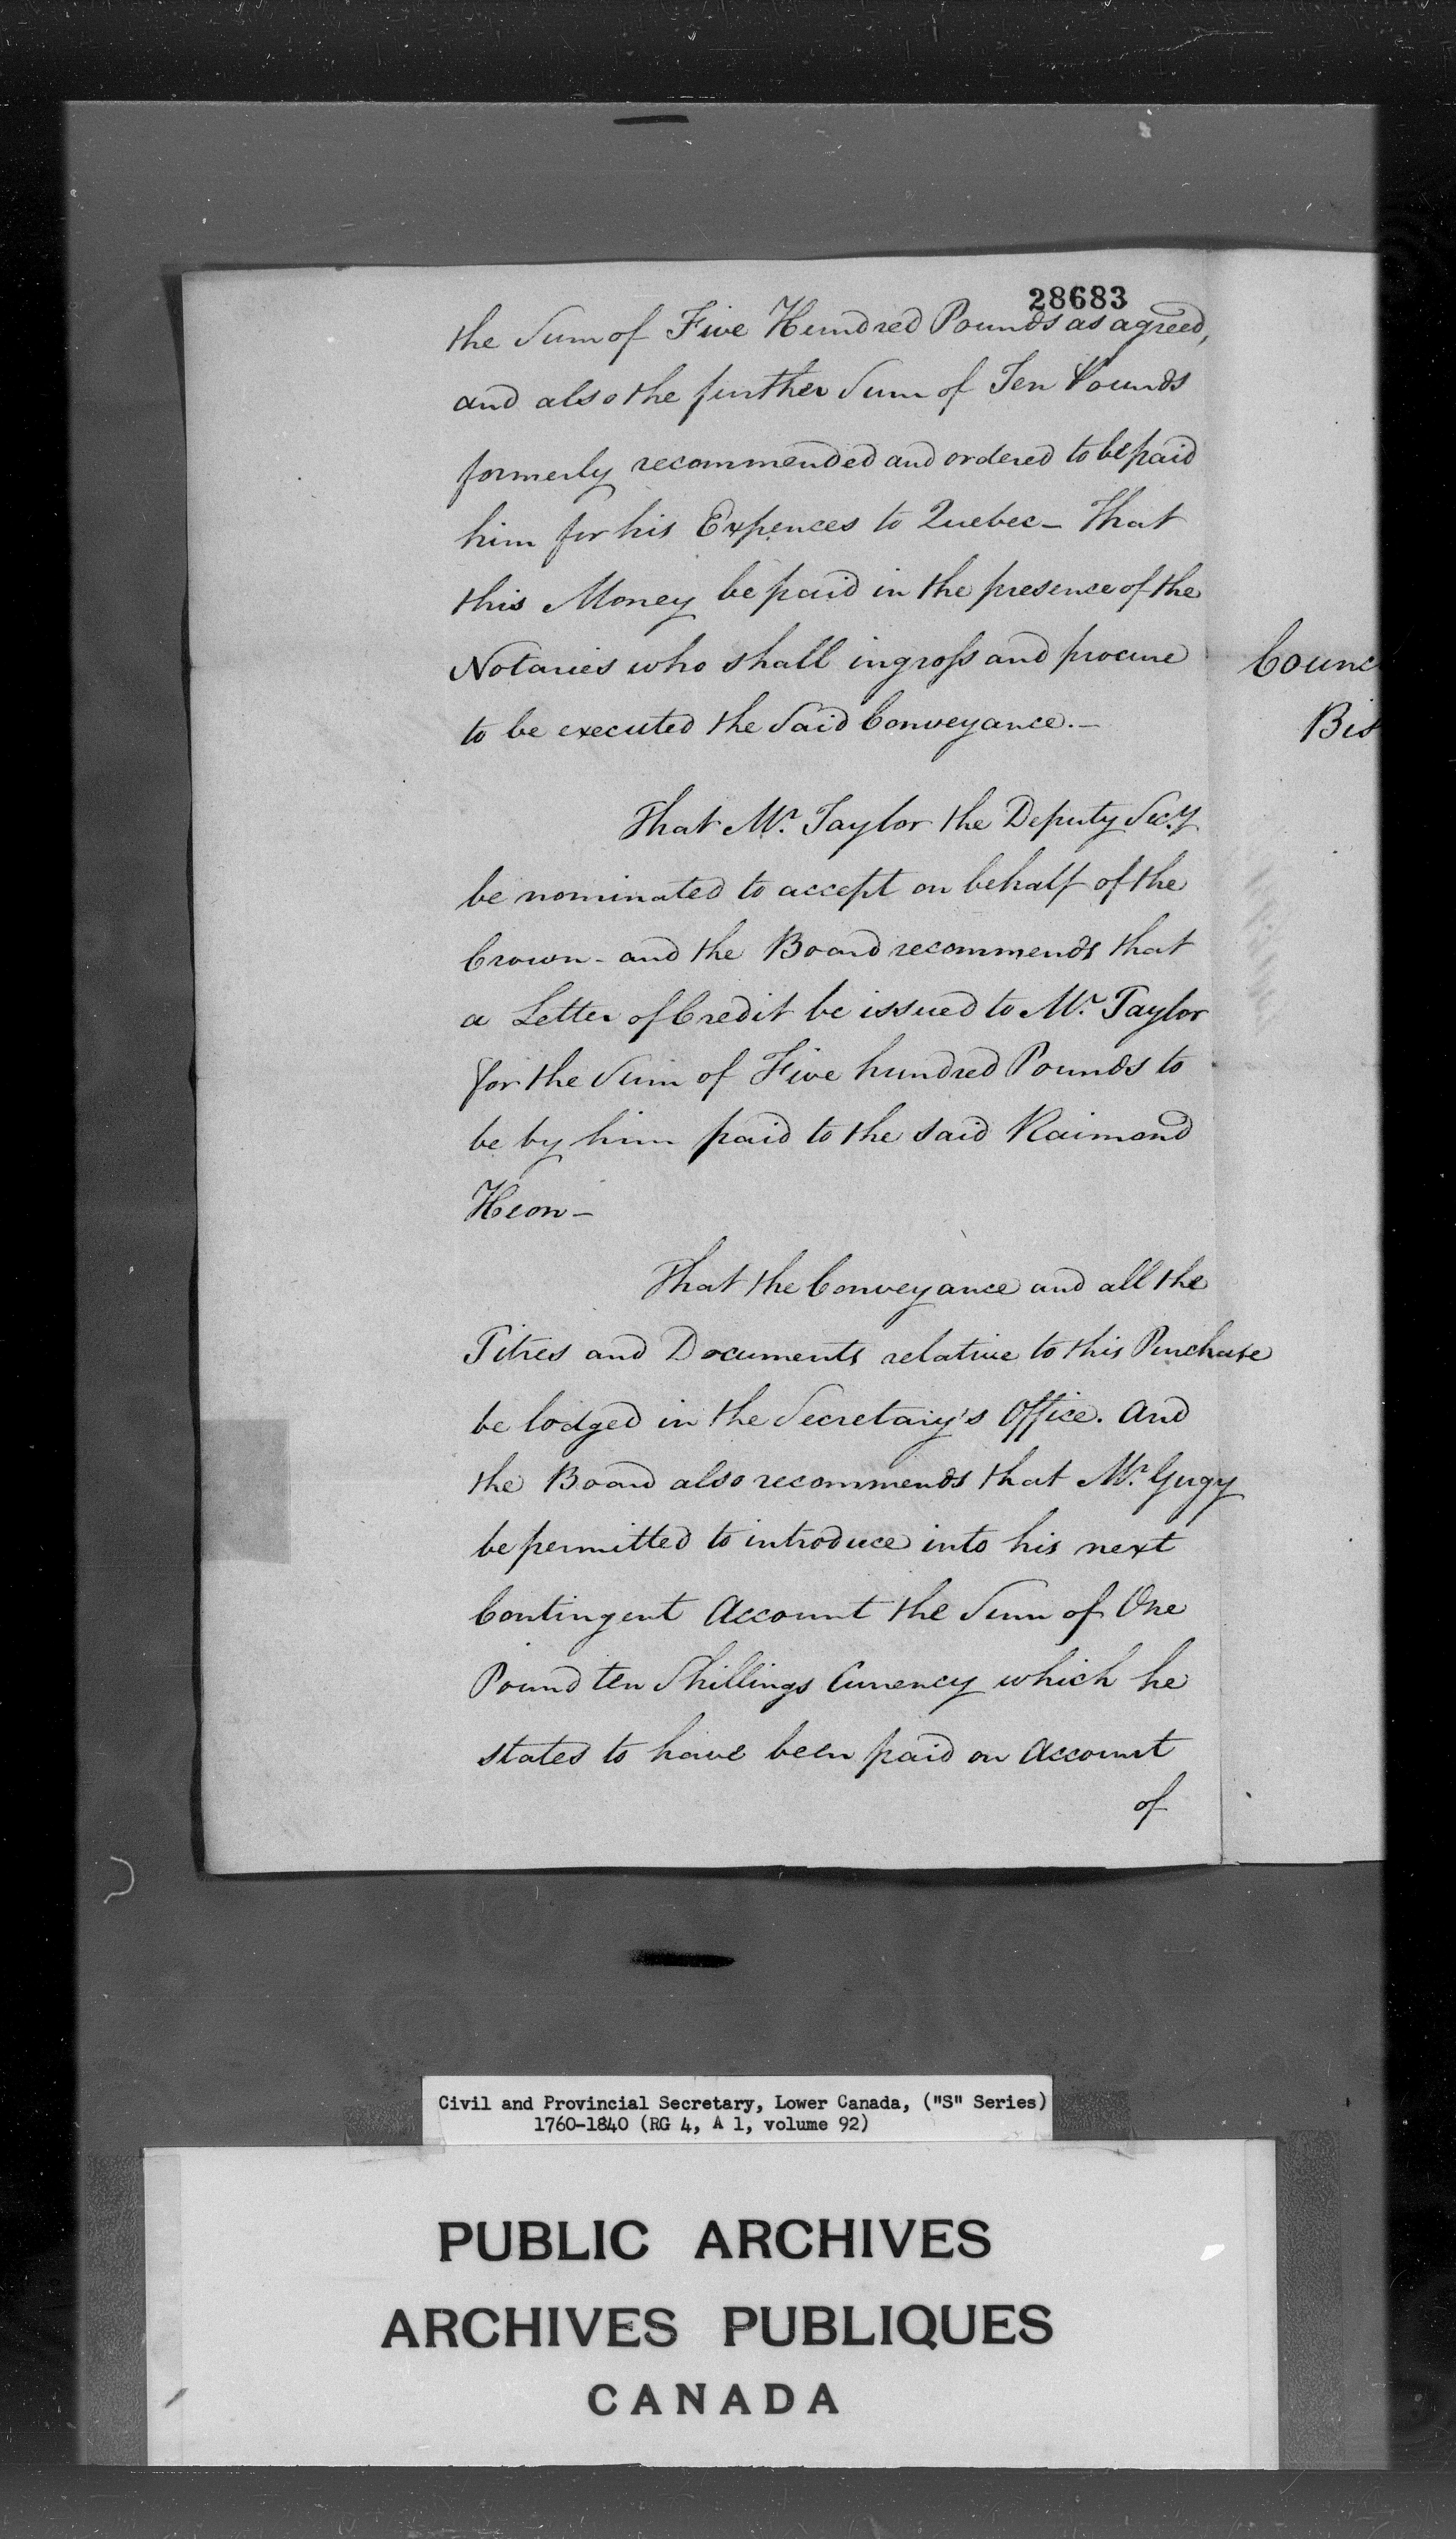 28683
the Sum of Five Hundred Pounds as agreed,
and also the further Sum of Ten Pounds
formerly recommended and ordered to be paid
him for his Expences to Quebec – That
this Money be paid in the presence of the
Notaries who shall ingross and procure
to be executed the Said Conveyance. –
That Mr. Taylor the Deputy Secy.
be nominated to accept on behalf of the
Crown – and the Board recommends that
a Letter of Credit be issued to Mr. Taylor
for the Sum of Five hundred Pounds to
be by him paid to the said Raimond
Heon –
That the Conveyance and all the
Titres and Documents relative to this Purchase
be lodged in the Secretary's Office. And
the Board also recommends that Mr. Gugy
be permitted to introduce into his next
Contingent Account the Sum of One
Pound ten Shillings Currency which he
states to have been paid on Account
of
Counc
Bis
Civil and Provincial Secretary, Lower Canada, ("S" Series)
1760-1840 (RG 4, A 1, volume 92)
PUBLIC ARCHIVES
ARCHIVES PUBLIQUES
CANADA